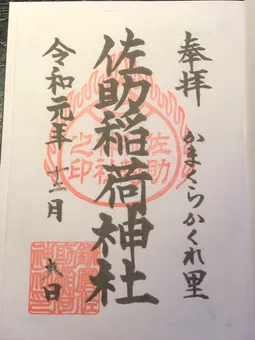 奉拝
かまくらかくれ里
佐助稲荷神社
佐助
稲荷
神社
之印
令和元年 十二月
日